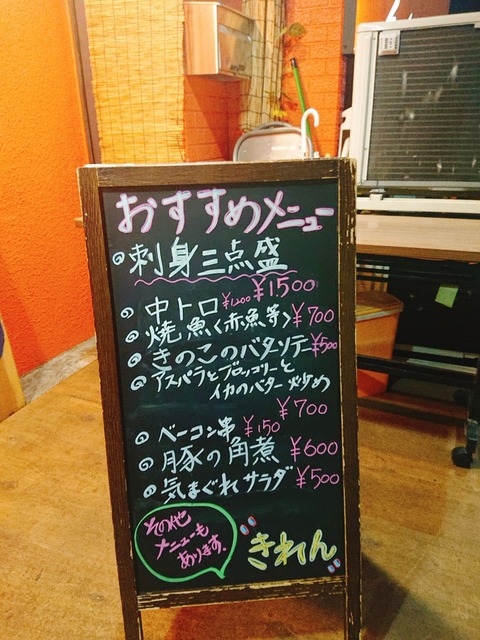 おすすめメニュー
刺身三点盛
¥1500
中トロ ¥1,200
焼魚〈赤魚等〉¥700
きのこのバタソテー ¥500
アスパラとブロッコリーと
イカのバター炒め
¥700
ベーコン串 ¥150
豚の角煮 ¥600
気まぐれサラダ ¥500
その他
メニューも
あります。
きれん